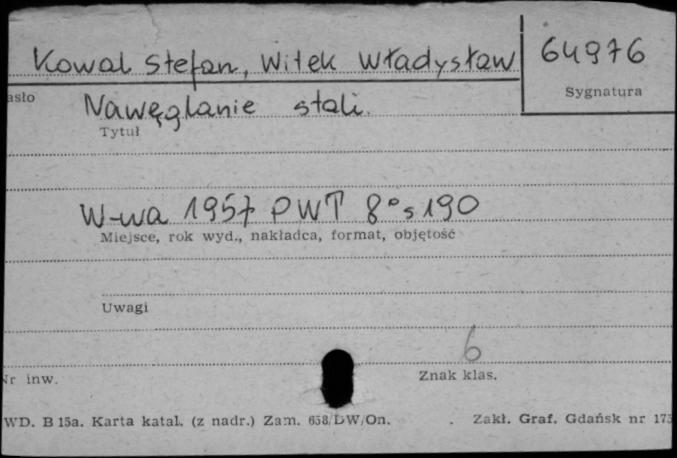 Kowal Stefan, Witek Władysław 64976
asło Sygnatura
Nawęglanie stali.
Tytuł
W-wa 1957 PWT 8° s 190
Miejsce, rok wyd., nakładca, format, objętość
Uwagi
6
Nr inw. Znak klas.
WD. B 15a. Karta katal. (z nadr.) Zam. 658/DW/On. Zakł. Graf. Gdańsk nr 173